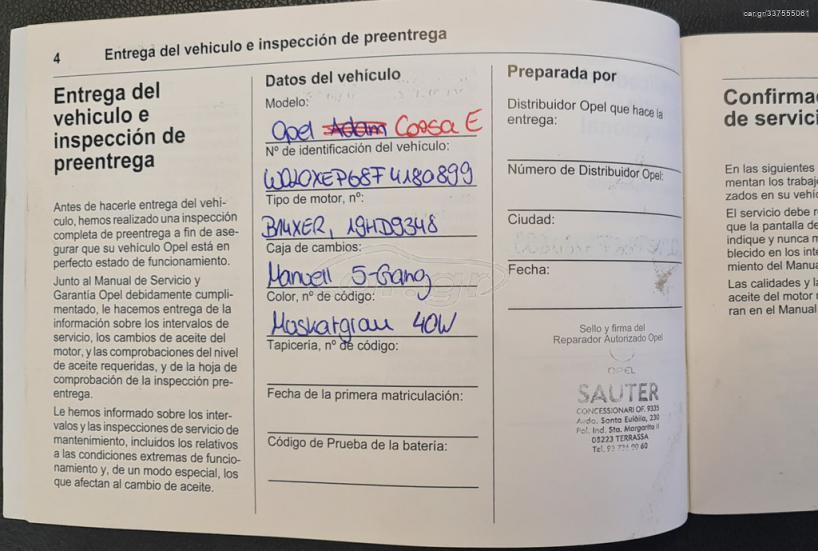 car.gr/337555061
4 Entrega del vehiculo e inspección de preentrega
Entrega del
vehiculo e
inspección de
preentrega
Antes de hacerle entrega del vehí-
culo, hemos realizado una inspección
completa de preentrega a fin de ase-
gurar que su vehículo Opel está en
perfecto estado de funcionamiento.
Junto al Manual de Servicio y
Garantía Opel debidamente cumpli-
mentado, le hacemos entrega de la
información sobre los intervalos de
servicio, los cambios de aceite del
motor, y las comprobaciones del nivel
de aceite requeridas, y de la hoja de
comprobación de la inspección pre-
entrega.
Le hemos informado sobre los inter-
valos y las inspecciones de servicio de
mantenimiento, incluidos los relativos
a las condiciones extremas de funcio-
namiento y, de un modo especial, los
que afectan al cambio de aceite.
Datos del vehículo
Modelo:
Opel Adam Corsa E
Nº de identificación del vehículo:
W0L0XEP68F4180899
Tipo de motor, nº:
B14XER, 19HD9348
Caja de cambios:
Manuell 5-Gang
Color, nº de código:
Moskatgrau 40W
Tapicería, nº de código:
Fecha de la primera matriculación:
Código de Prueba de la batería:
Preparada por
Distribuidor Opel que hace la
entrega:
Número de Distribuidor Opel:
Ciudad:
Fecha:
Sello y firma del
Reparador Autorizado Opel
OPEL
SAUTER
CONCESSIONARI OF. 9335
Avda. Santa Eulàlia, 230
Pol. Ind. Sta. Margarita II
08223 TERRASSA
Tel. 93 60
Confirma
de servici
En las siguientes
mentan los trabaj
zados en su vehíc
El servicio debe r
que la pantalla de
indique y nunca m
blecido en los inte
miento del Manua
Las calidades y la
aceite del motor
ran en el Manual